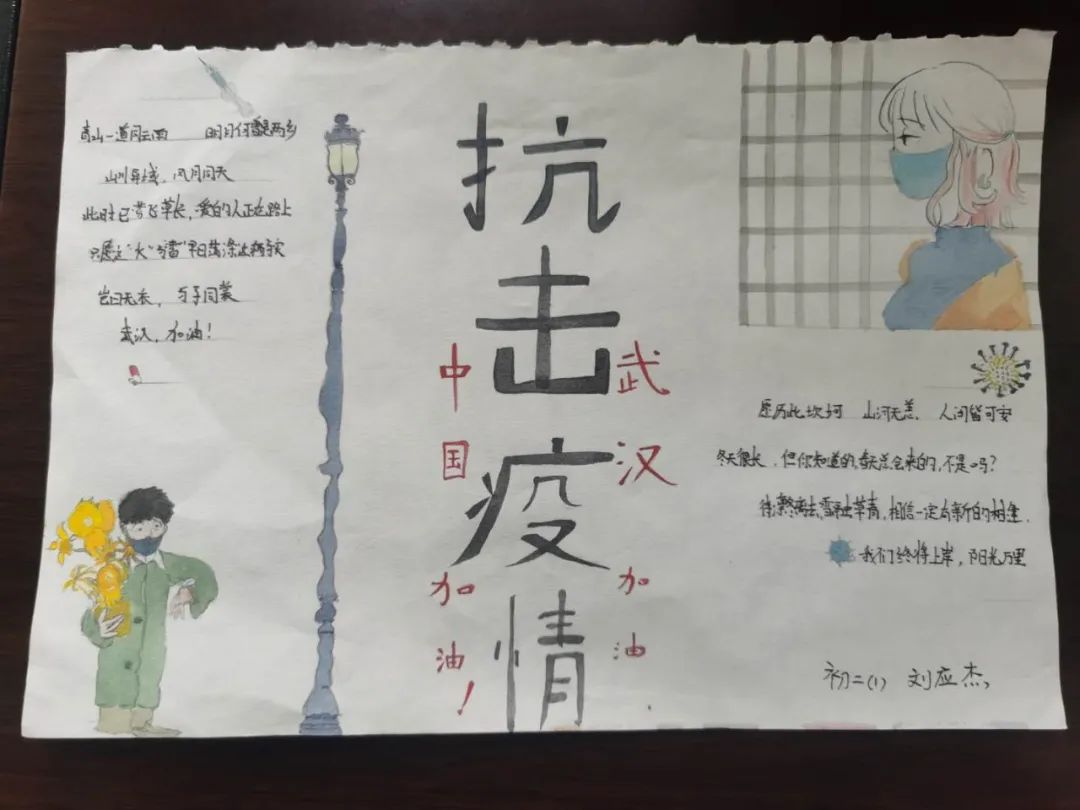 青山一道同云雨 明月何曾是两乡
山川异域，风月同天
此时已莺飞草长，爱的人正在路上
只愿这"火""雷"早日荡涤这病疾
岂曰无衣，与子同裳
武汉，加油！
抗击疫情
中国加油！
武汉加油
愿历此坎坷 山河无恙、人间皆可安
冬天很长，但你知道的，春天总会来的，不是吗？
待 离去，雪 草青，相信一定有新的相逢．
我们终将上岸，阳光万里
初二(1) 刘应杰